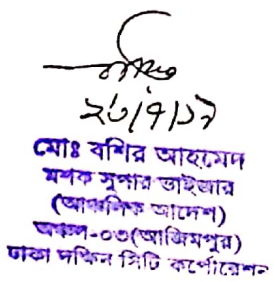 ২৩/৭/১৯
মোঃ বশির আহমেদ
মশক সুপার ভাইজার
(আঞ্চলিক আদেশ)
অঞ্চল-০৩(আজিমপুর)
ঢাকা দক্ষিন সিটি কর্পোরেশন